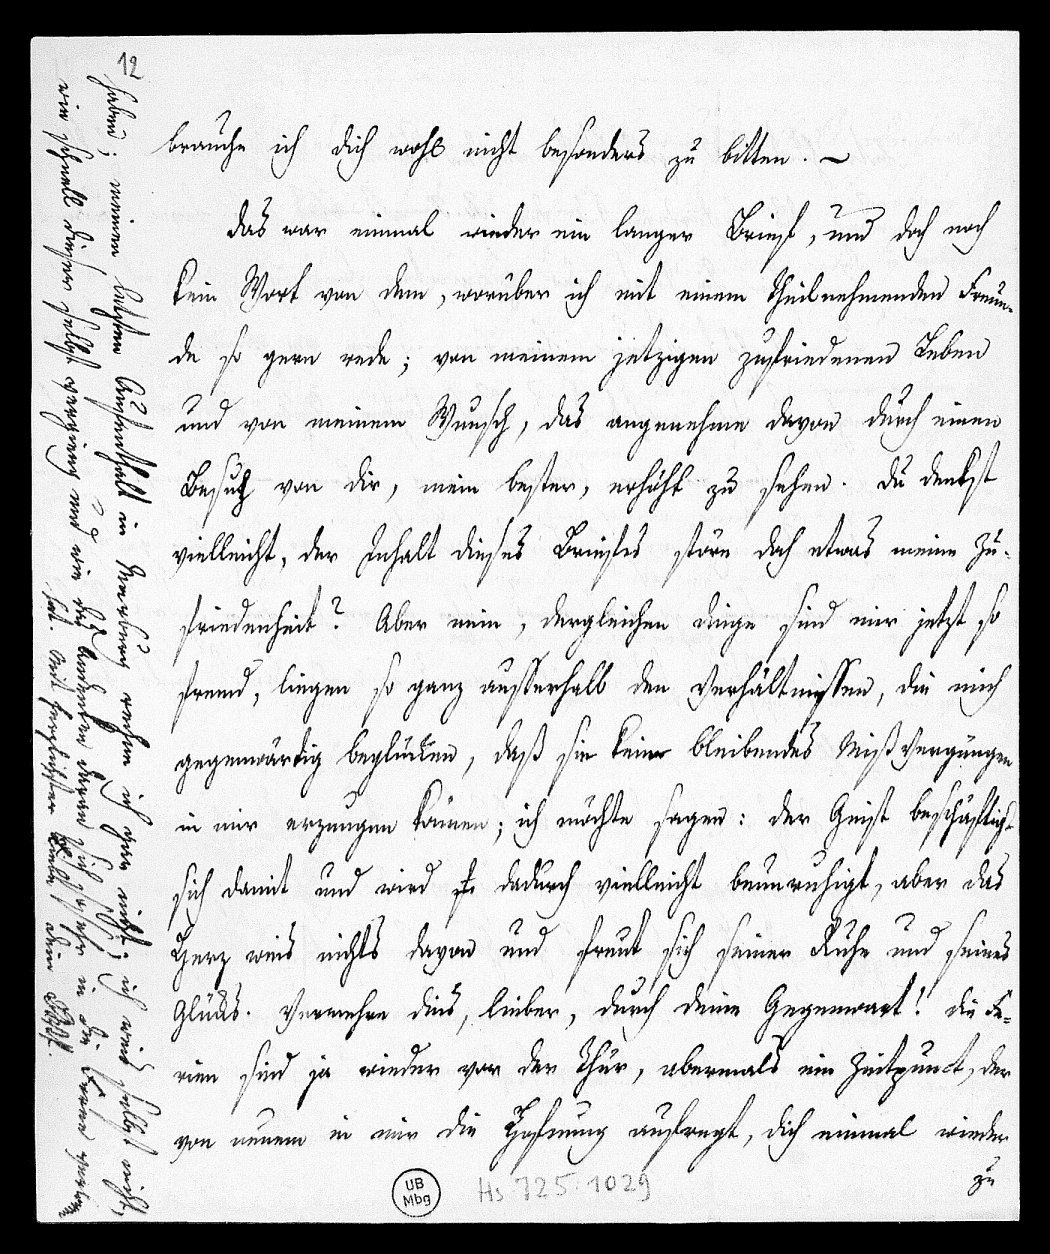 12
brauche ich dich wohl nicht besonders zu bitten. –
Das war einmal wieder ein langer Brief, und doch noch
kein Wort von dem, worüber ich mit einem theilnehmenden Freun-
de so gern rede; von meinem jetzigen zufriedenen Leben
und von meinem Wunsch, das angenehme davon durch einen
Besuch von dir, mein bester, erhöht zu sehen. Du denkst
vielleicht, der Inhalt dieses Briefes störe doch etwas meine Zu-
friedenheit? Aber nein, dergleichen Dinge sind mir jetzt so
fremd, liegen so ganz ausserhalb den Verhältnissen, die mich
gegenwärtig beglücken, daß sie kein bleibendes Mißvergnügen
in mir erzeugen können; ich möchte sagen: der Geist beschäftigt
sich damit und wird dadurch vielleicht beunruhigt, aber das
Herz weis nichts davon und freut sich seiner Ruhe und seines
Glücks. Vermehre dies, lieber, durch deine Gegenwart! Die Fe-
rien sind ja wieder vor der Thür, abermals ein Zeitpunct, der
von neuem in mir die Hofnung aufregt, dich einmal wieder
zu
haben; meinen letzten Aufenthalt in Marburg rechne ich gar nicht; ich weis selbst nicht,
ein Schnell
UB
Mbg
Hs. 725:1029